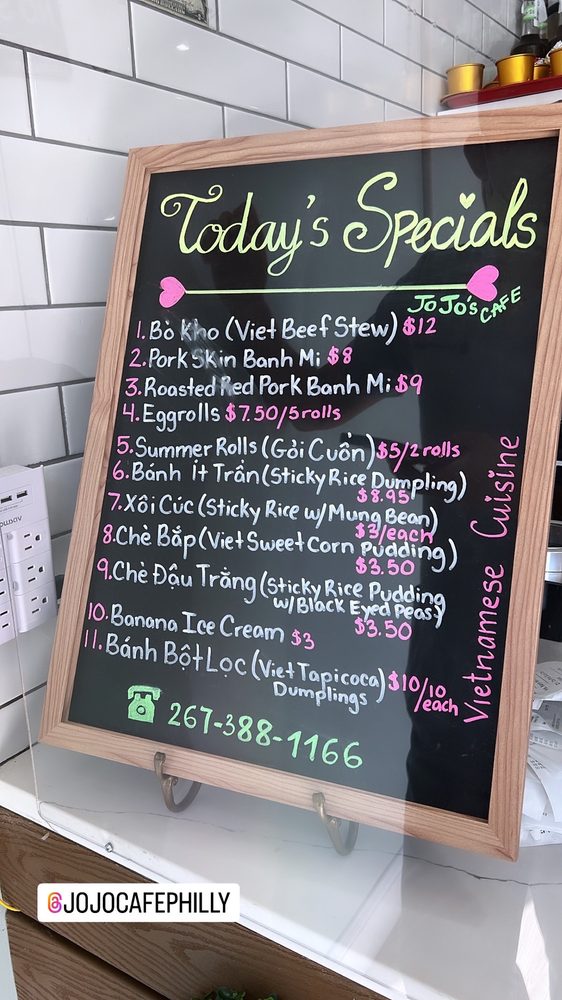 Today's Specials
JoJo's CAFE
1. Bò Kho (Viet Beef Stew) $12
2. Pork Skin Banh Mi $8
3. Roasted Red Pork Banh Mi $9
4. Eggrolls $7.50/5 rolls
5. Summer Rolls (Gỏi Cuốn) $5/2 rolls
6. Bánh Ít Trần (Sticky Rice Dumpling)
$8.95
7. Xôi Cúc (Sticky Rice w/ Mung Bean)
$3/each
8. Chè Bắp (Viet Sweet Corn Pudding)
$3.50
9. Chè Đậu Trắng (Sticky Rice Pudding
w/ Black Eyed Peas)
$3.50
10. Banana Ice Cream $3
11. Bánh Bột Lọc (Viet Tapicoca $10/10
Dumplings) /each
Vietnamese Cuisine
267-388-1166
@JOJOCAFEPHILLY